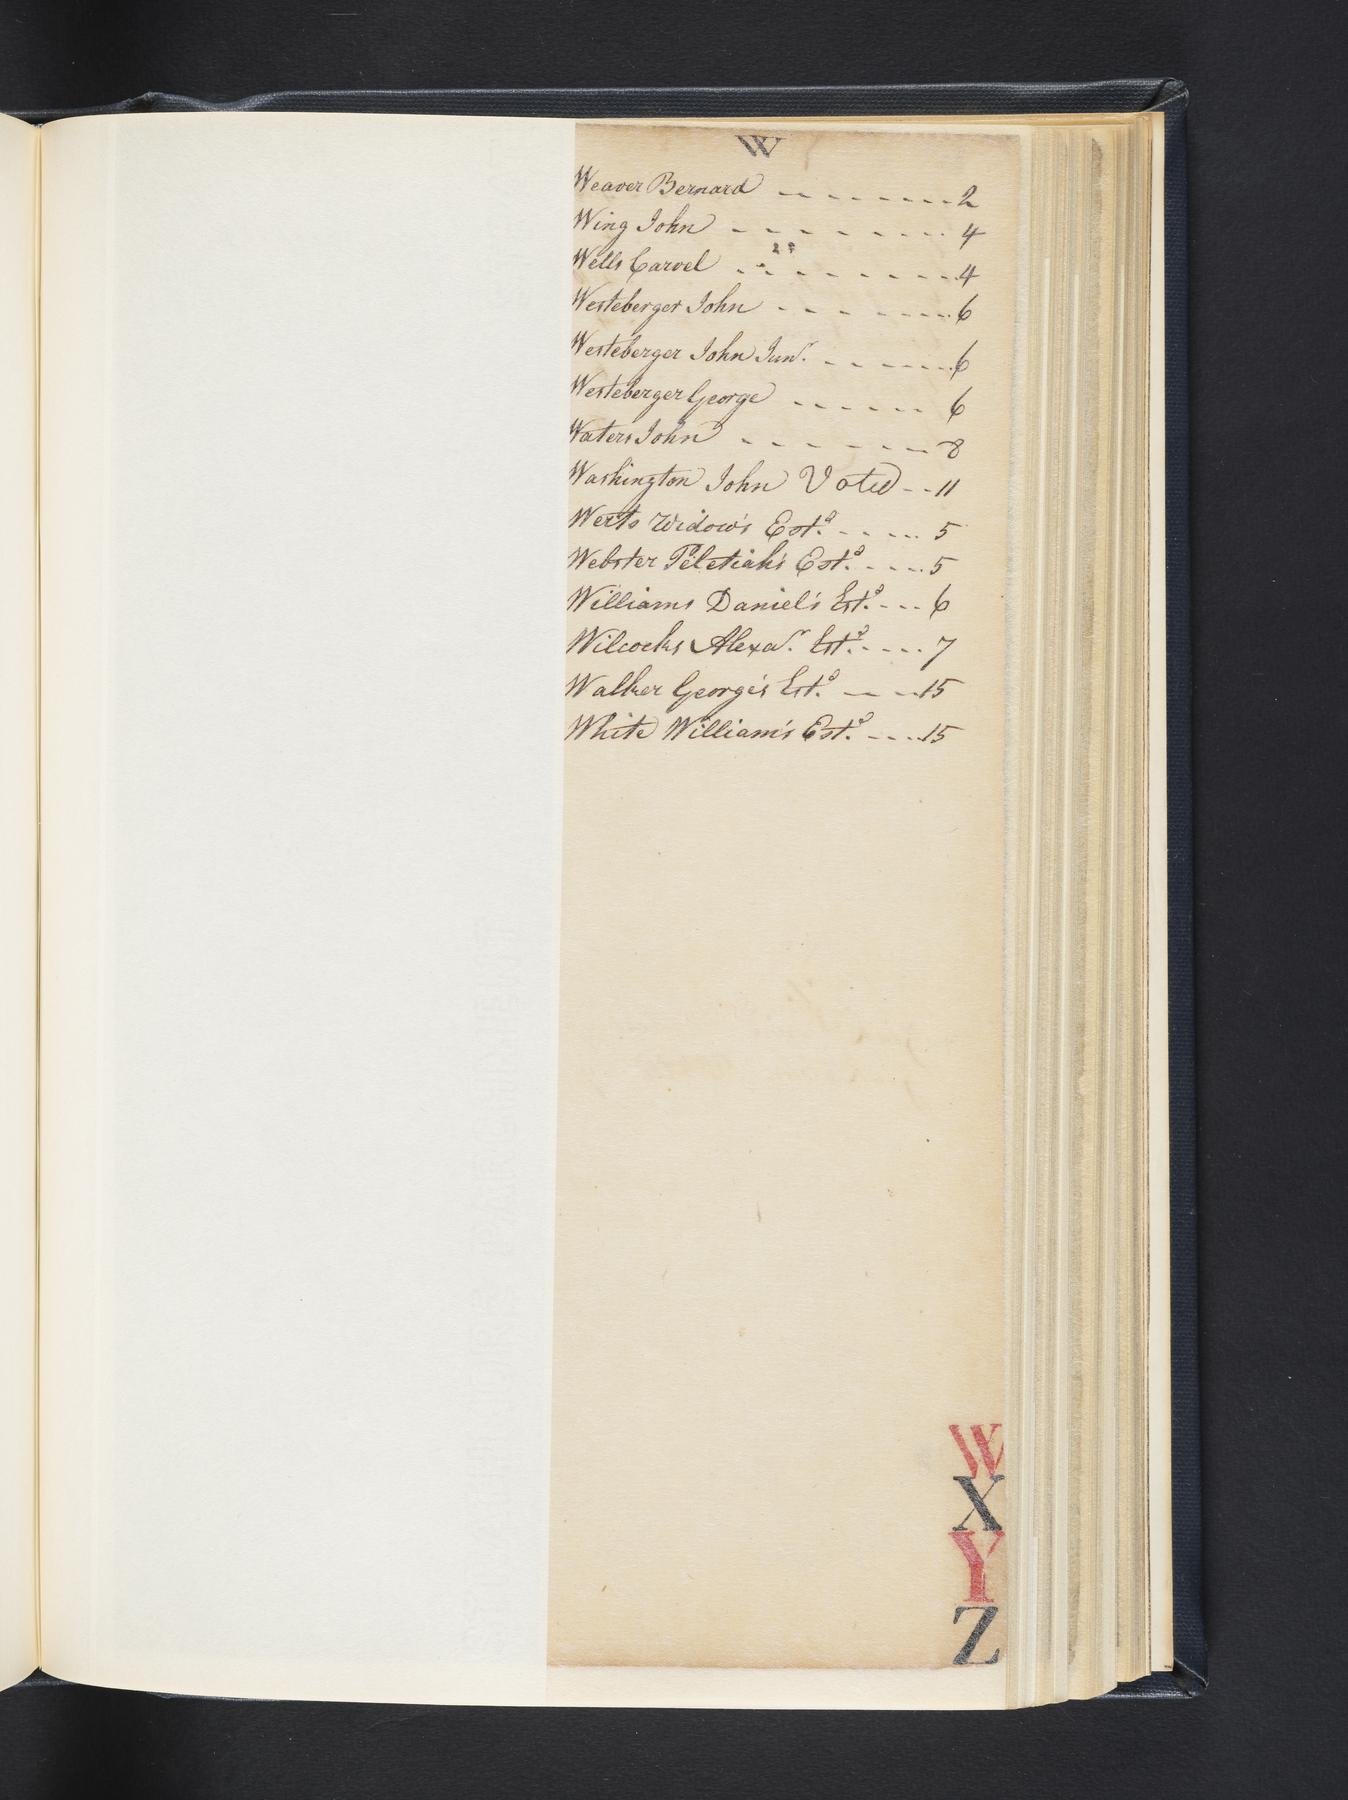 W
Weaver Bernard - - - - - - - - 2
Wing John - - - - - - - - 4
Wells Carvel - - - - - - - - 4
Westeberger John - - - - - - - 6
Westeberger John Junr. - - - - - - 6
Westeberger George - - - - - - 6
Waters John - - - - - - - 8
Washington John Voted - - 11
Werts Widow's Estd. - - - - - 5
Webster Peletiah's Estd. - - - - 5
Williams Daniel's Estd. - - - 6
Wilcocks Alexar. Estd. - - - - 7
Walker George's Estd. - - - 15
White William's Estd. - - - - 15
W
X
Y
Z